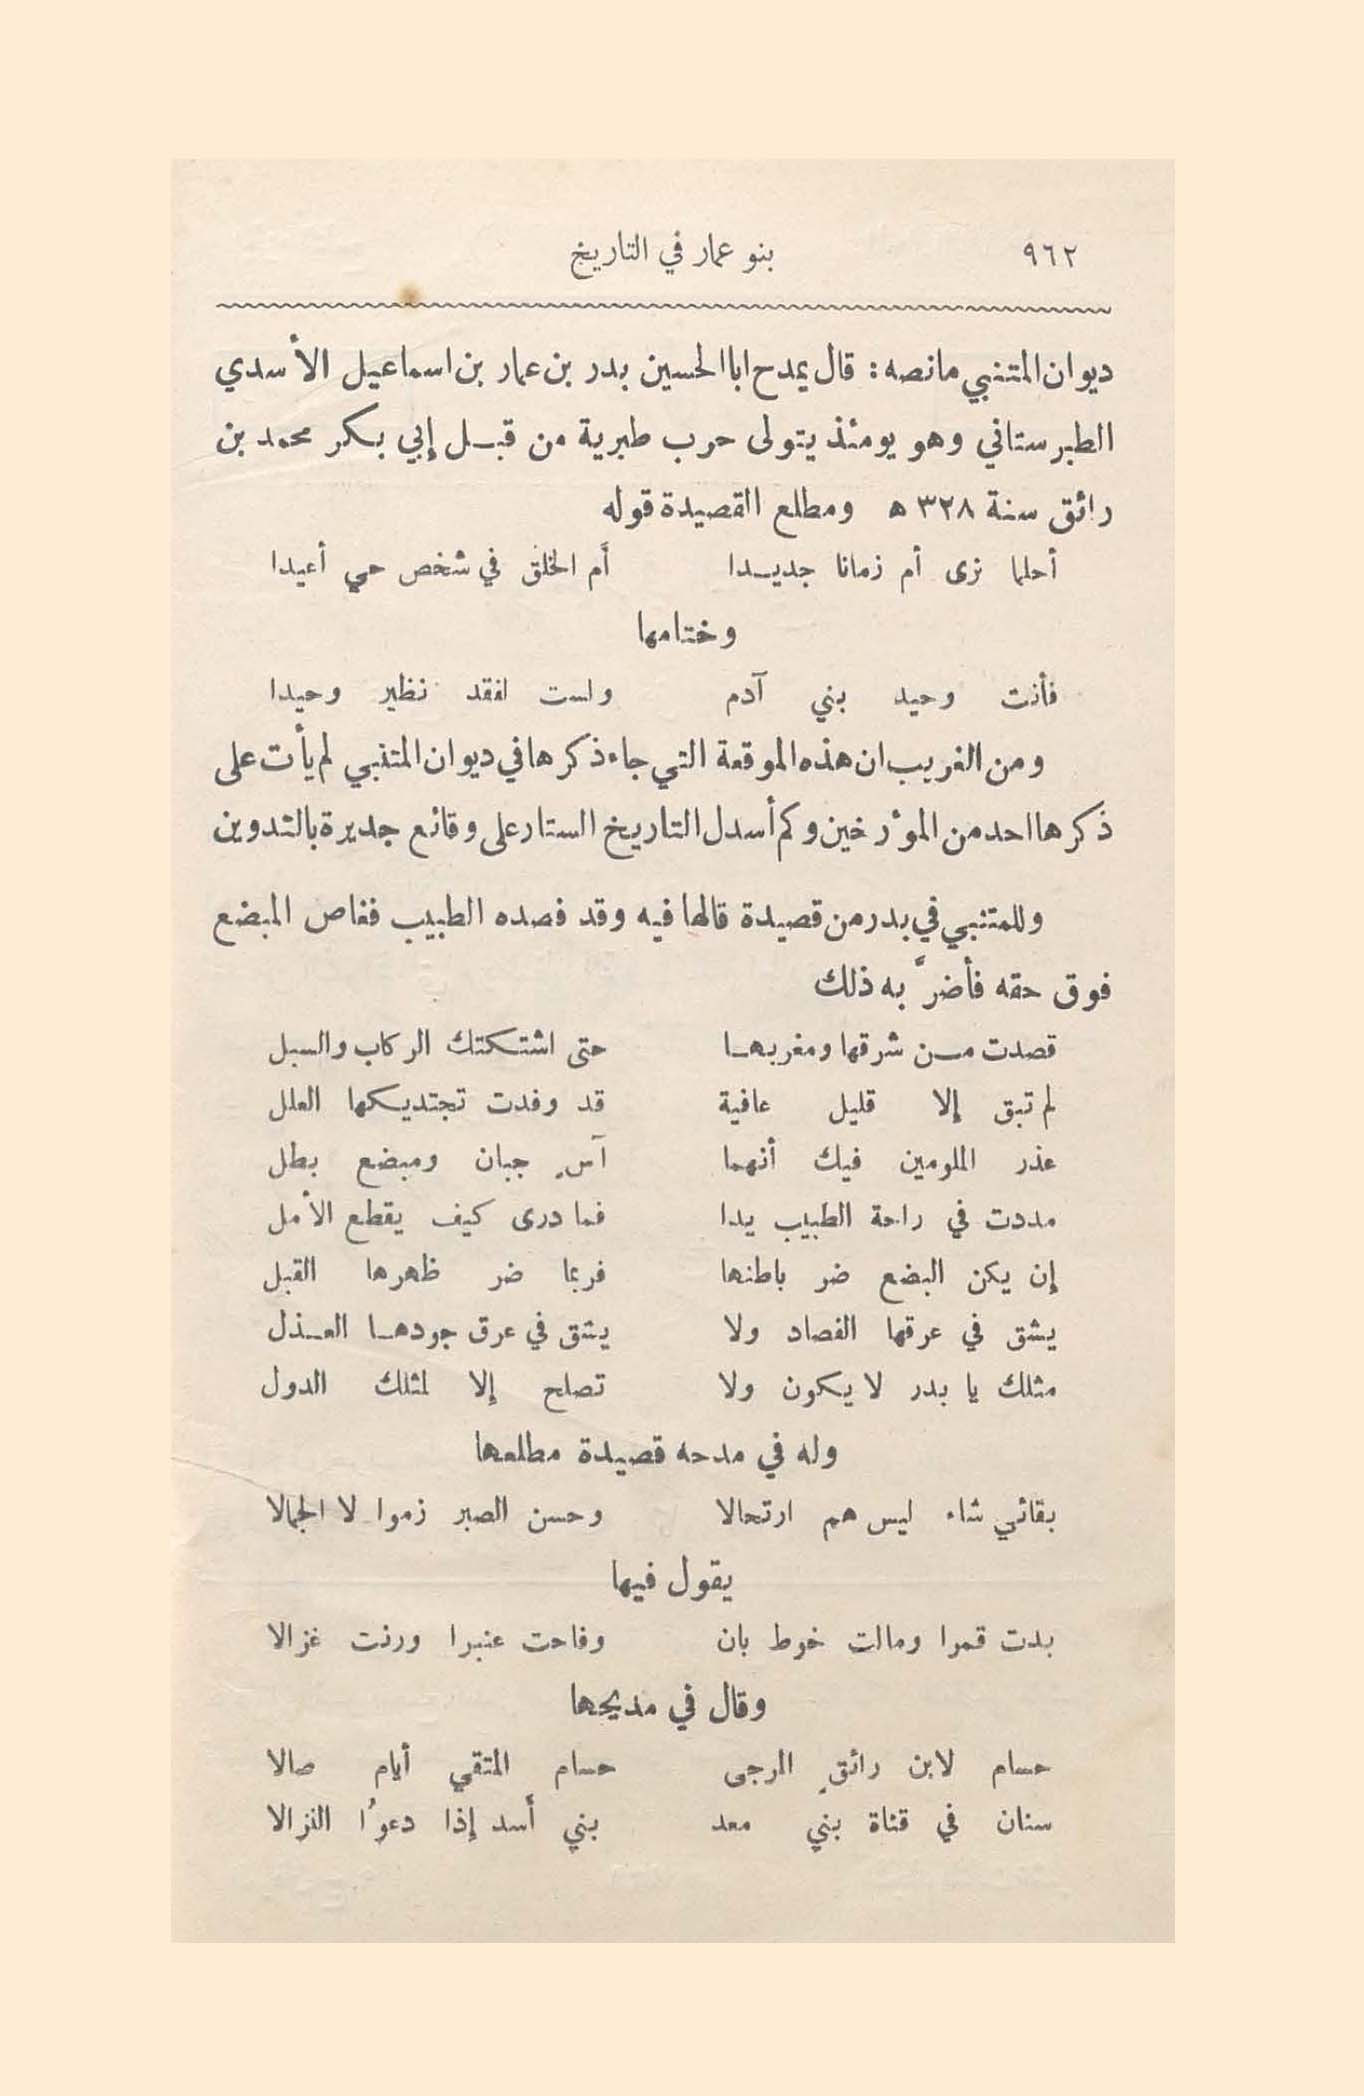 ٩٦٢ بنو عمار في التاريخ
ديوان المتنبي مانصه: قال يمدح ابا الحسين بدر بن عمار بن اسماعيل الأسدي
الطبرستاني وهو يومئذ يتولى حرب طبرية من قبل إبي بكر محمد بن
رائق سنة ٣٢٨ ه ومطلع القصيدة قوله
أحلما نرى أم زمانا جديدا أم الخلق في شخص حي أعيدا
وختامها
فأنت وحيد بني آدم ولست لفقد نظير وحيدا
ومن الغريب ان هذه الموقعة التي جاء ذكرها في ديوان المتنبي لم يأت على
ذكرها احد من المؤرخين وكم أسدل التاريخ الستار على وقائع جديرة بالتدوين
وللمتنبي في بدر من قصيدة قالها فيه وقد فصده الطبيب فغاص المبضع
فوق حقه فأضرَّ به ذلك
قصدت من شرقها ومغربها حتى اشتكتك الركاب والسبل
لم تبق إلا قليل عافية قد وفدت تجتديكها العلل
عذر الملومين فيك أنهما آسٍ جبان ومبضع بطل
مددت في راحة الطبيب يدا فما درى كيف يقطع الأمل
إن يكن البضع ضر باطنها فربما ضر ظهرها القبل
يشق في عرقها الفصاد ولا يشق في عرق جودها العذل
مثلك يا بدر لا يكون ولا تصلح إلا لمثلك الدول
وله في مدحه قصيدة مطلعها
بقائي شاء ليس هم ارتحالا وحسن الصبر زموا لا الجمالا
يقول فيها
بدت قمرا ومالت خوط بان وفاحت عنبرا ورنت غزالا
وقال في مديحها
حسام لابن رائقٍ المرجى حسام المتقي أيام صالا
سنان في قناة بني معد بني أسد إذا دعوُا النزالا